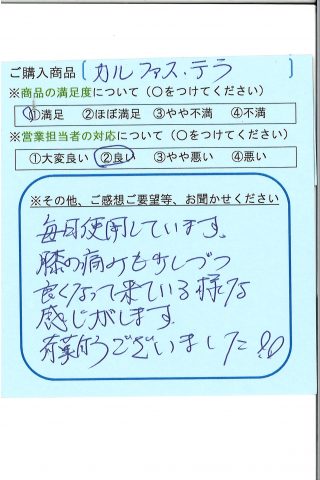 ご購入商品〔カルファス・テラ〕
※商品の満足度について（○をつけてください）
①満足 ②ほぼ満足 ③やや不満 ④不満
※営業担当者の対応について（○をつけてください）
①大変良い ②良い ③やや悪い ④悪い
※その他、ご感想ご要望等、お聞かせください
毎日使用しています。
膝の痛みも少しづつ
良くなって来ている様な
感じがします。
有難うございました!!